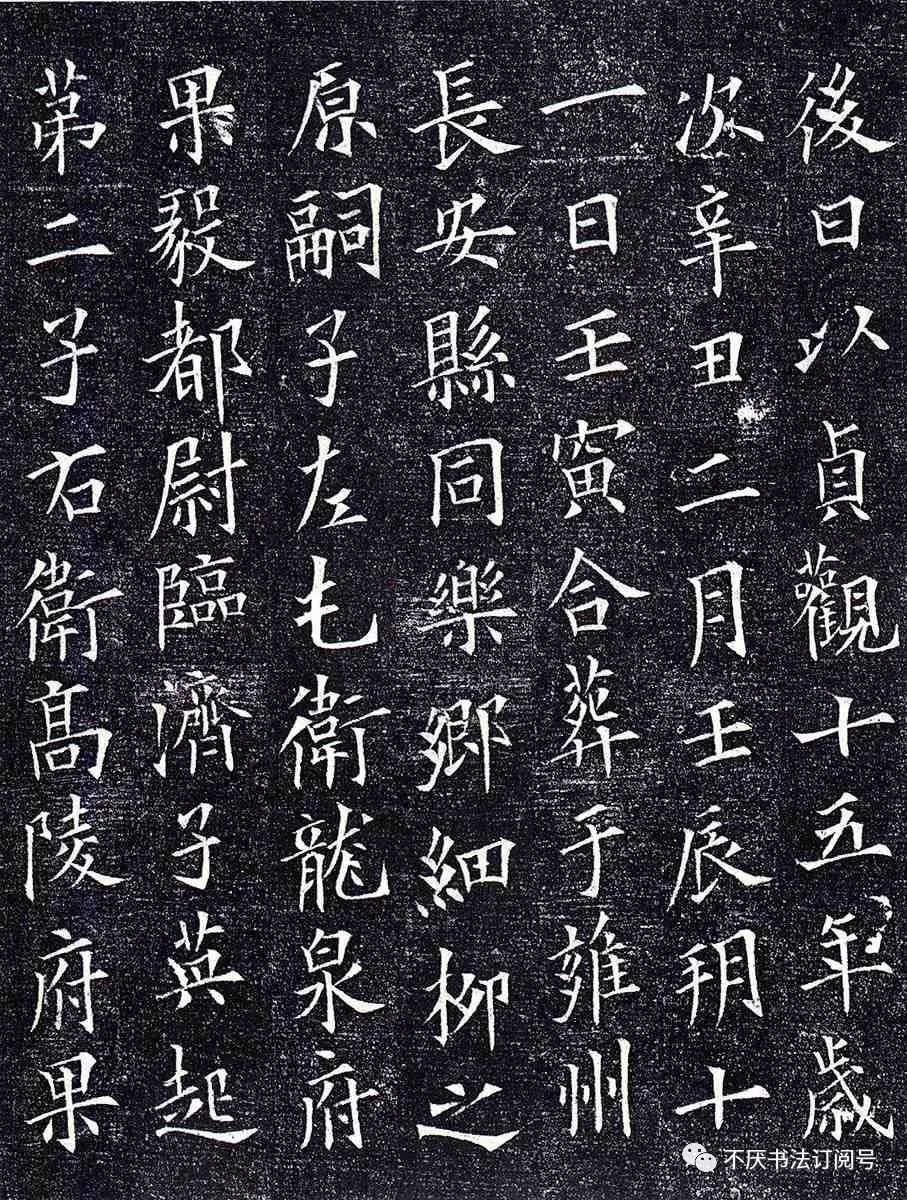 後日以貞觀十五年歲
次辛丑二月壬辰朔十
一日壬寅合葬于雍州
長安縣同樂鄉細柳之
原嗣子左屯衛龍泉府
果毅都尉臨濟子英起
第二子右衛高陵府果
不厌书法订阅号